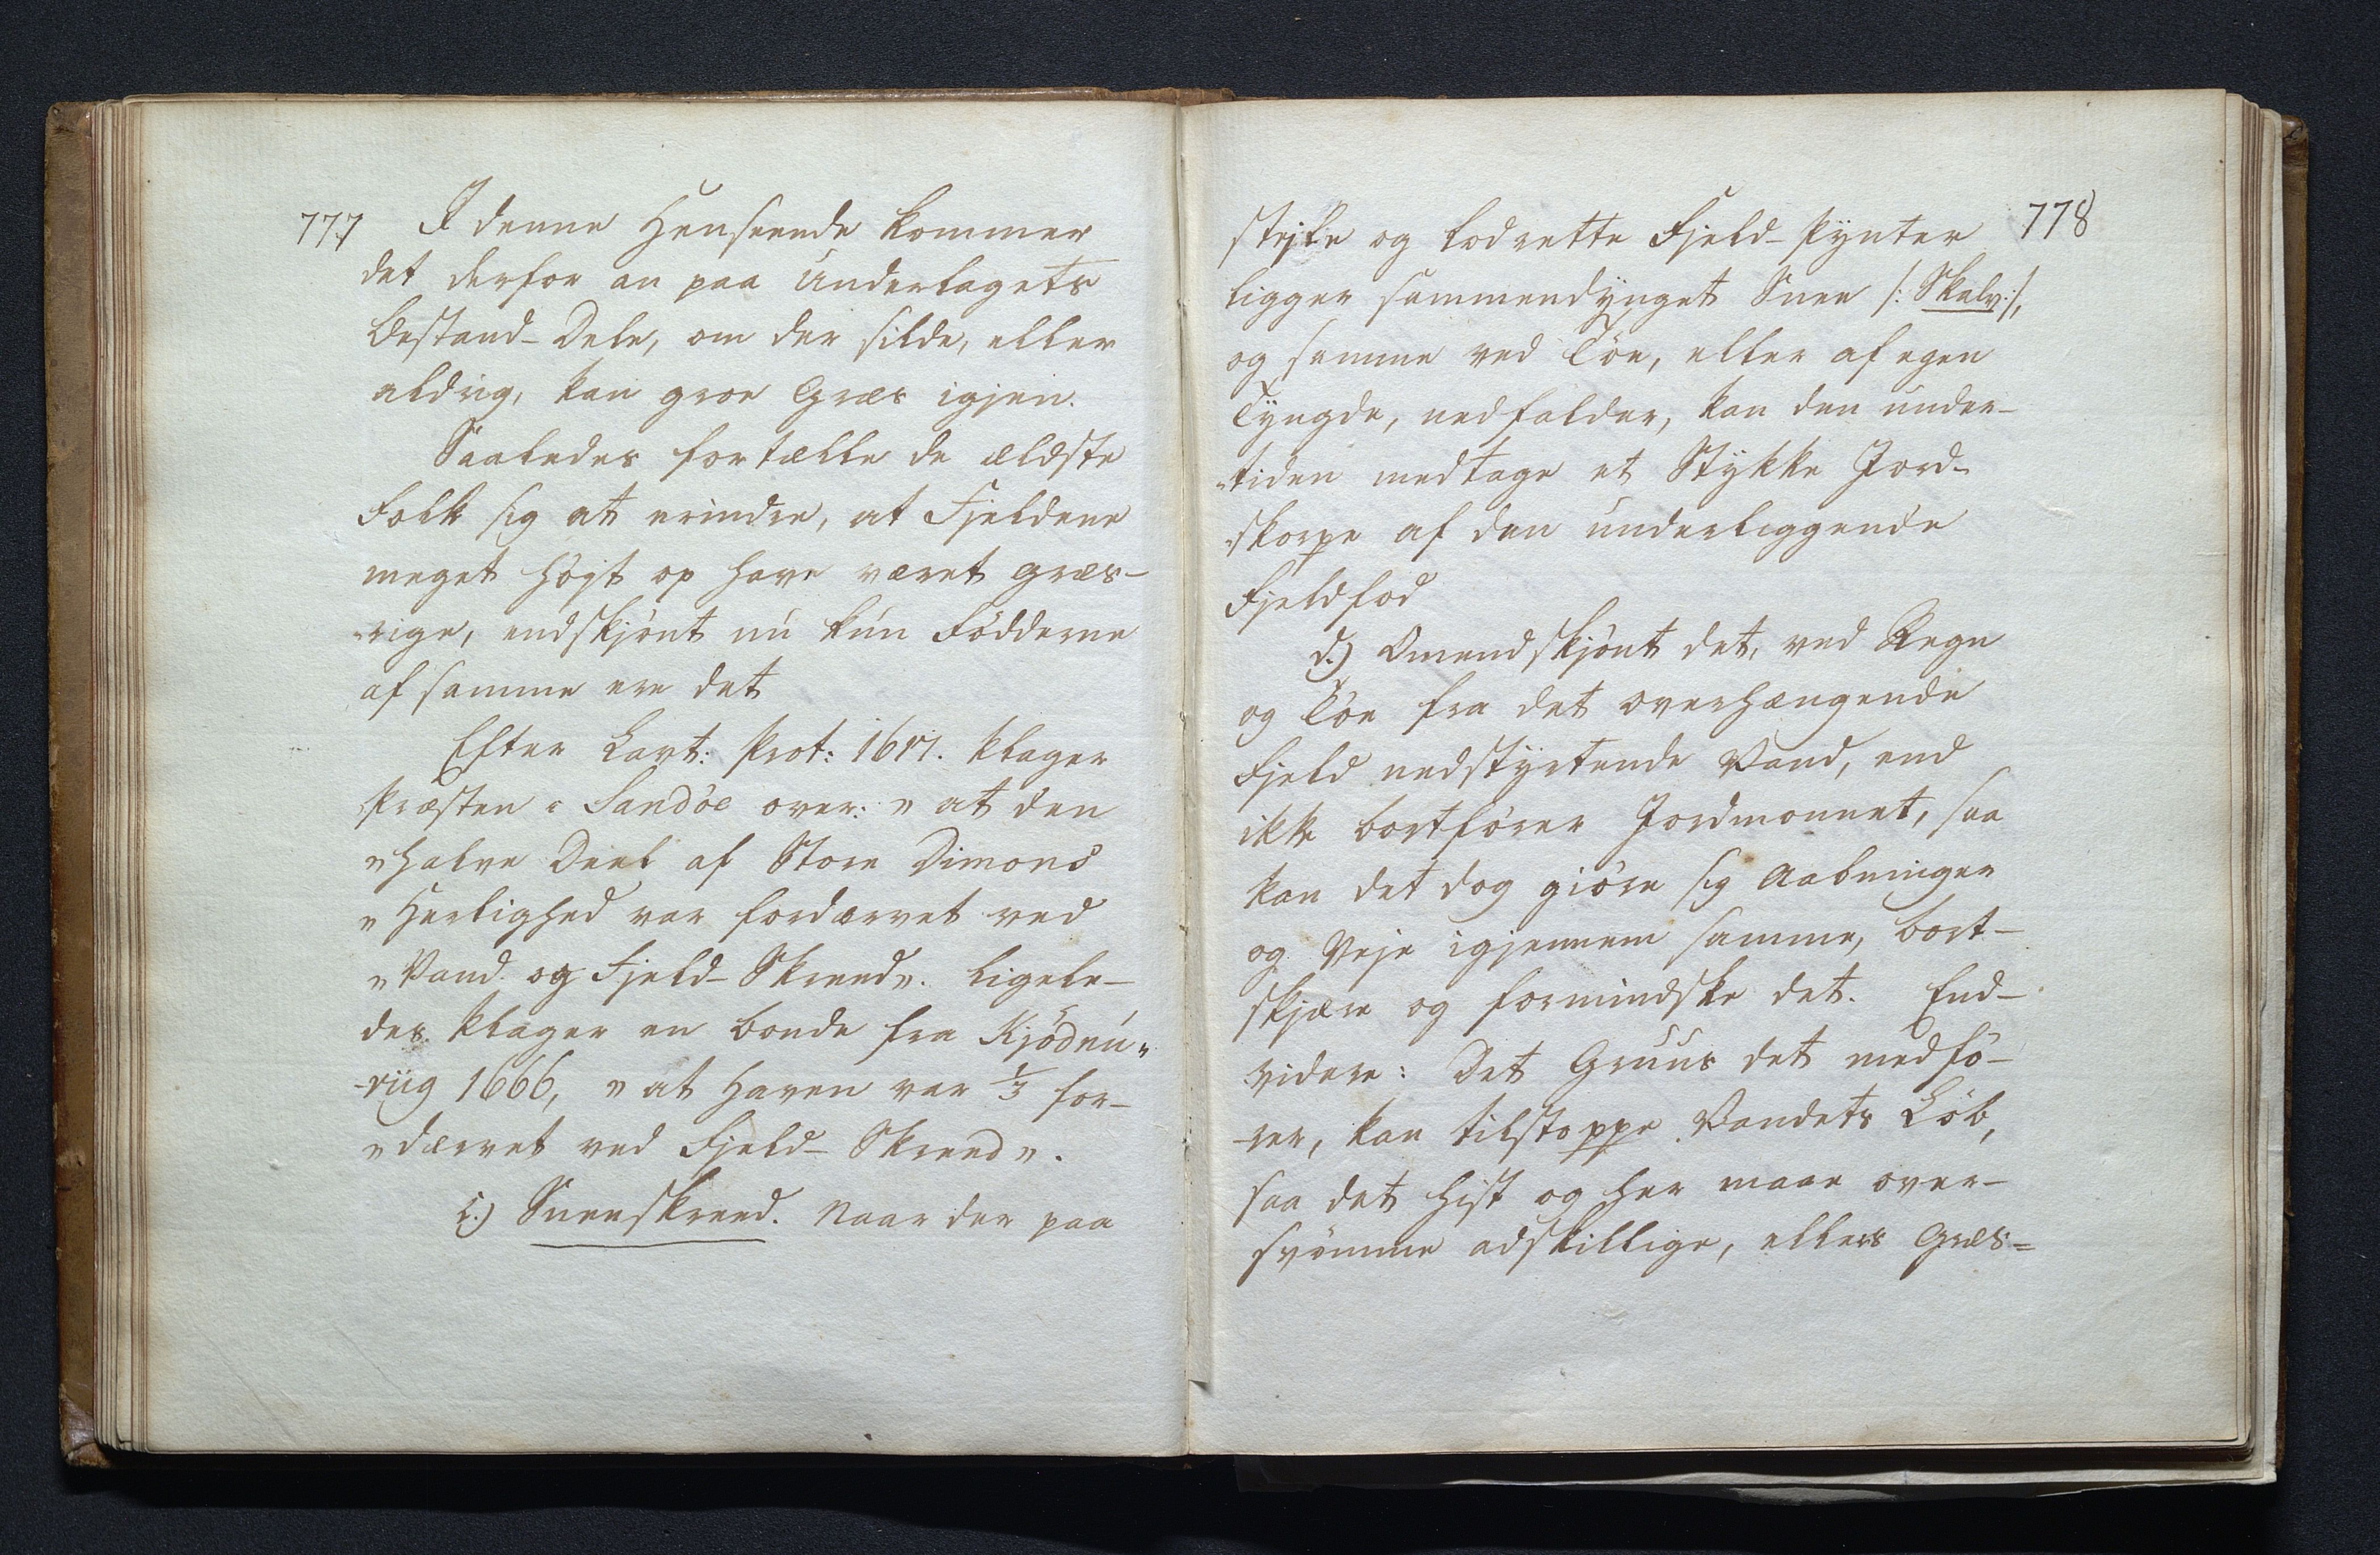 777
I denne Henseende kommer
det derfor an paa Underlagets
Bestand-Dele, om der silde, eller
aldrig, kan groe Græs igjen.
Saaledes fortælle de ældste
Folk sig at erindre, at Fjeldene
meget højt op have været græs-
-rige, endskjönt nu kun Födderne
af samme ere det
Efter Lavt: Prot: 1617. klager
Præsten i Sandöe over: „at den
„halve Deel af Store Dimons
„Herlighed var fordærvet ved
„Vand og Fjeld-Skreed„. Ligele-
des klager en Bonde fra Kjödnú„
-riig 1666, „at Haven var 1/3 for-
„dærvet ved Fjeld-Skreed„.
c.) Sneeskreed. Naar der paa
778
stejle og lodrette Fjeld-Pynter
ligger sammendynget Snee /: Skalv:/,
og samme ved Töe, eller af egen
Tyngde, nedfalder, kan den under-
-tiden medtage et Stykke Jord-
-skorpe af den underliggende
Fjeldfod
d.) Omendskjönt det, ved Regn
og Töe fra det overhængende
Fjeld nedstyrtende Vand, end
ikke bortförer Jordmonnet, saa
kan det dog giöre sig Aabninger
og Veje igjennem samme, bort-
skjære og formindske det. End-
videre: Det Gruus det medfö-
-rer, kan tilstoppe Vandets Löb,
saa det hist og her maae over-
svömme adskillige, ellers Græs=